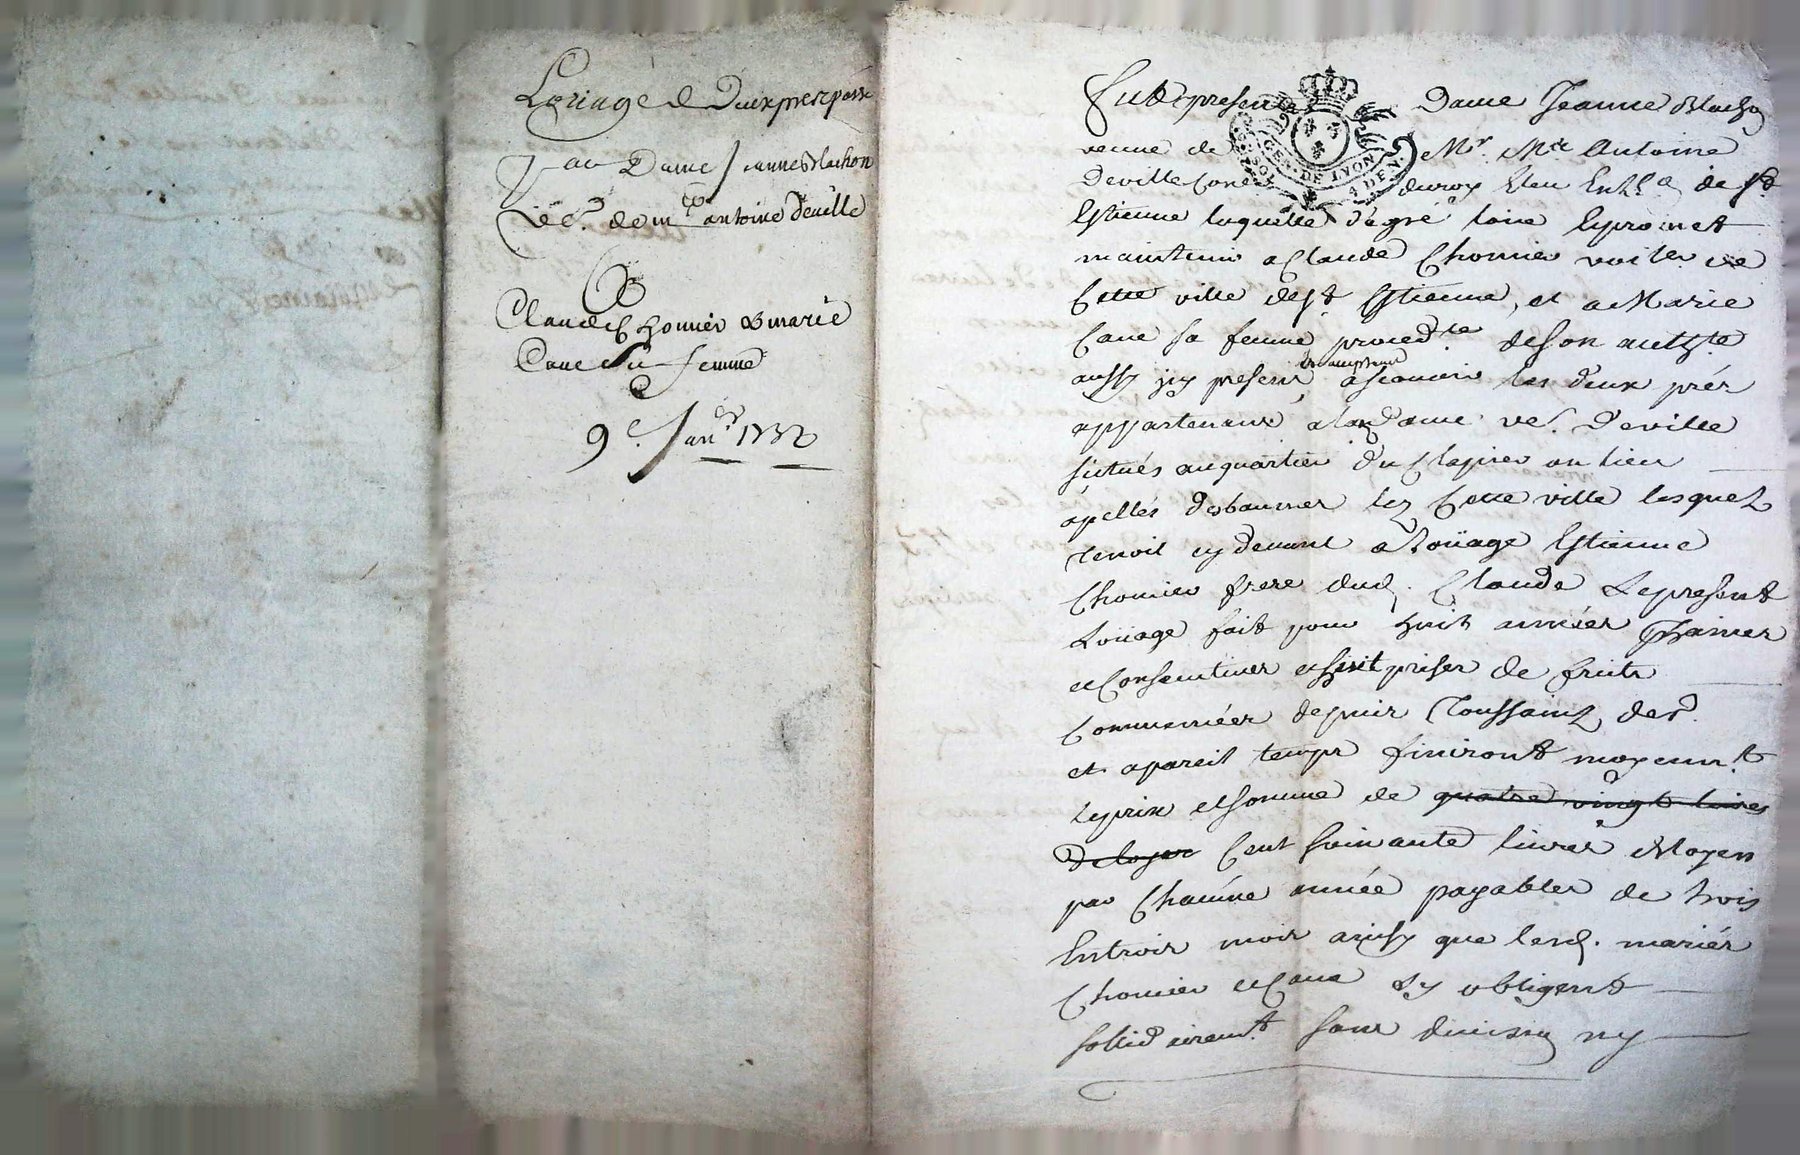 Loüage de Deux prez passé
par Dame Jeanne Blachon
ve. de mre antoine Deville
A
Claude Chomier & marie
Cave sa femme
9e. Janr. 1732
Fut presente Dame Jeanne Blachon
veuve de Mr. Me Antoine
Deville Coner duroy Eleu En L'En de St
Estienne laquelle de gré loüe & promet
maintenir a Claude Chomier voiter de
Cette ville de St Estienne, et a Marie
Cave sa femme proced.te de son autté.
aussy icy presents & acceptants
ascavoir les deux prés
appartenants a lad. Dame ve. Deville
situés au quartier du Clapier au lieu
apellés des baumes lez Cette ville lesquels
tenoit cy devant a Loüage Estienne
Chomier frere dud. Claude Le present
Loüage fait pour huit années
et Consecutives & huit prises de fruits
Commencées depuis Toussaint der.
et a pareil temps finiront moyenn.t
le prix & somme de quatre vingt livres
De loyer Cent soixante livres
par Chacune année payables de trois
En trois mois ainsy que lesd. mariés
Chomier et Cave s'y obligent
sollidairem.t sans division ny
GEN. DE LYON
4 DEN.